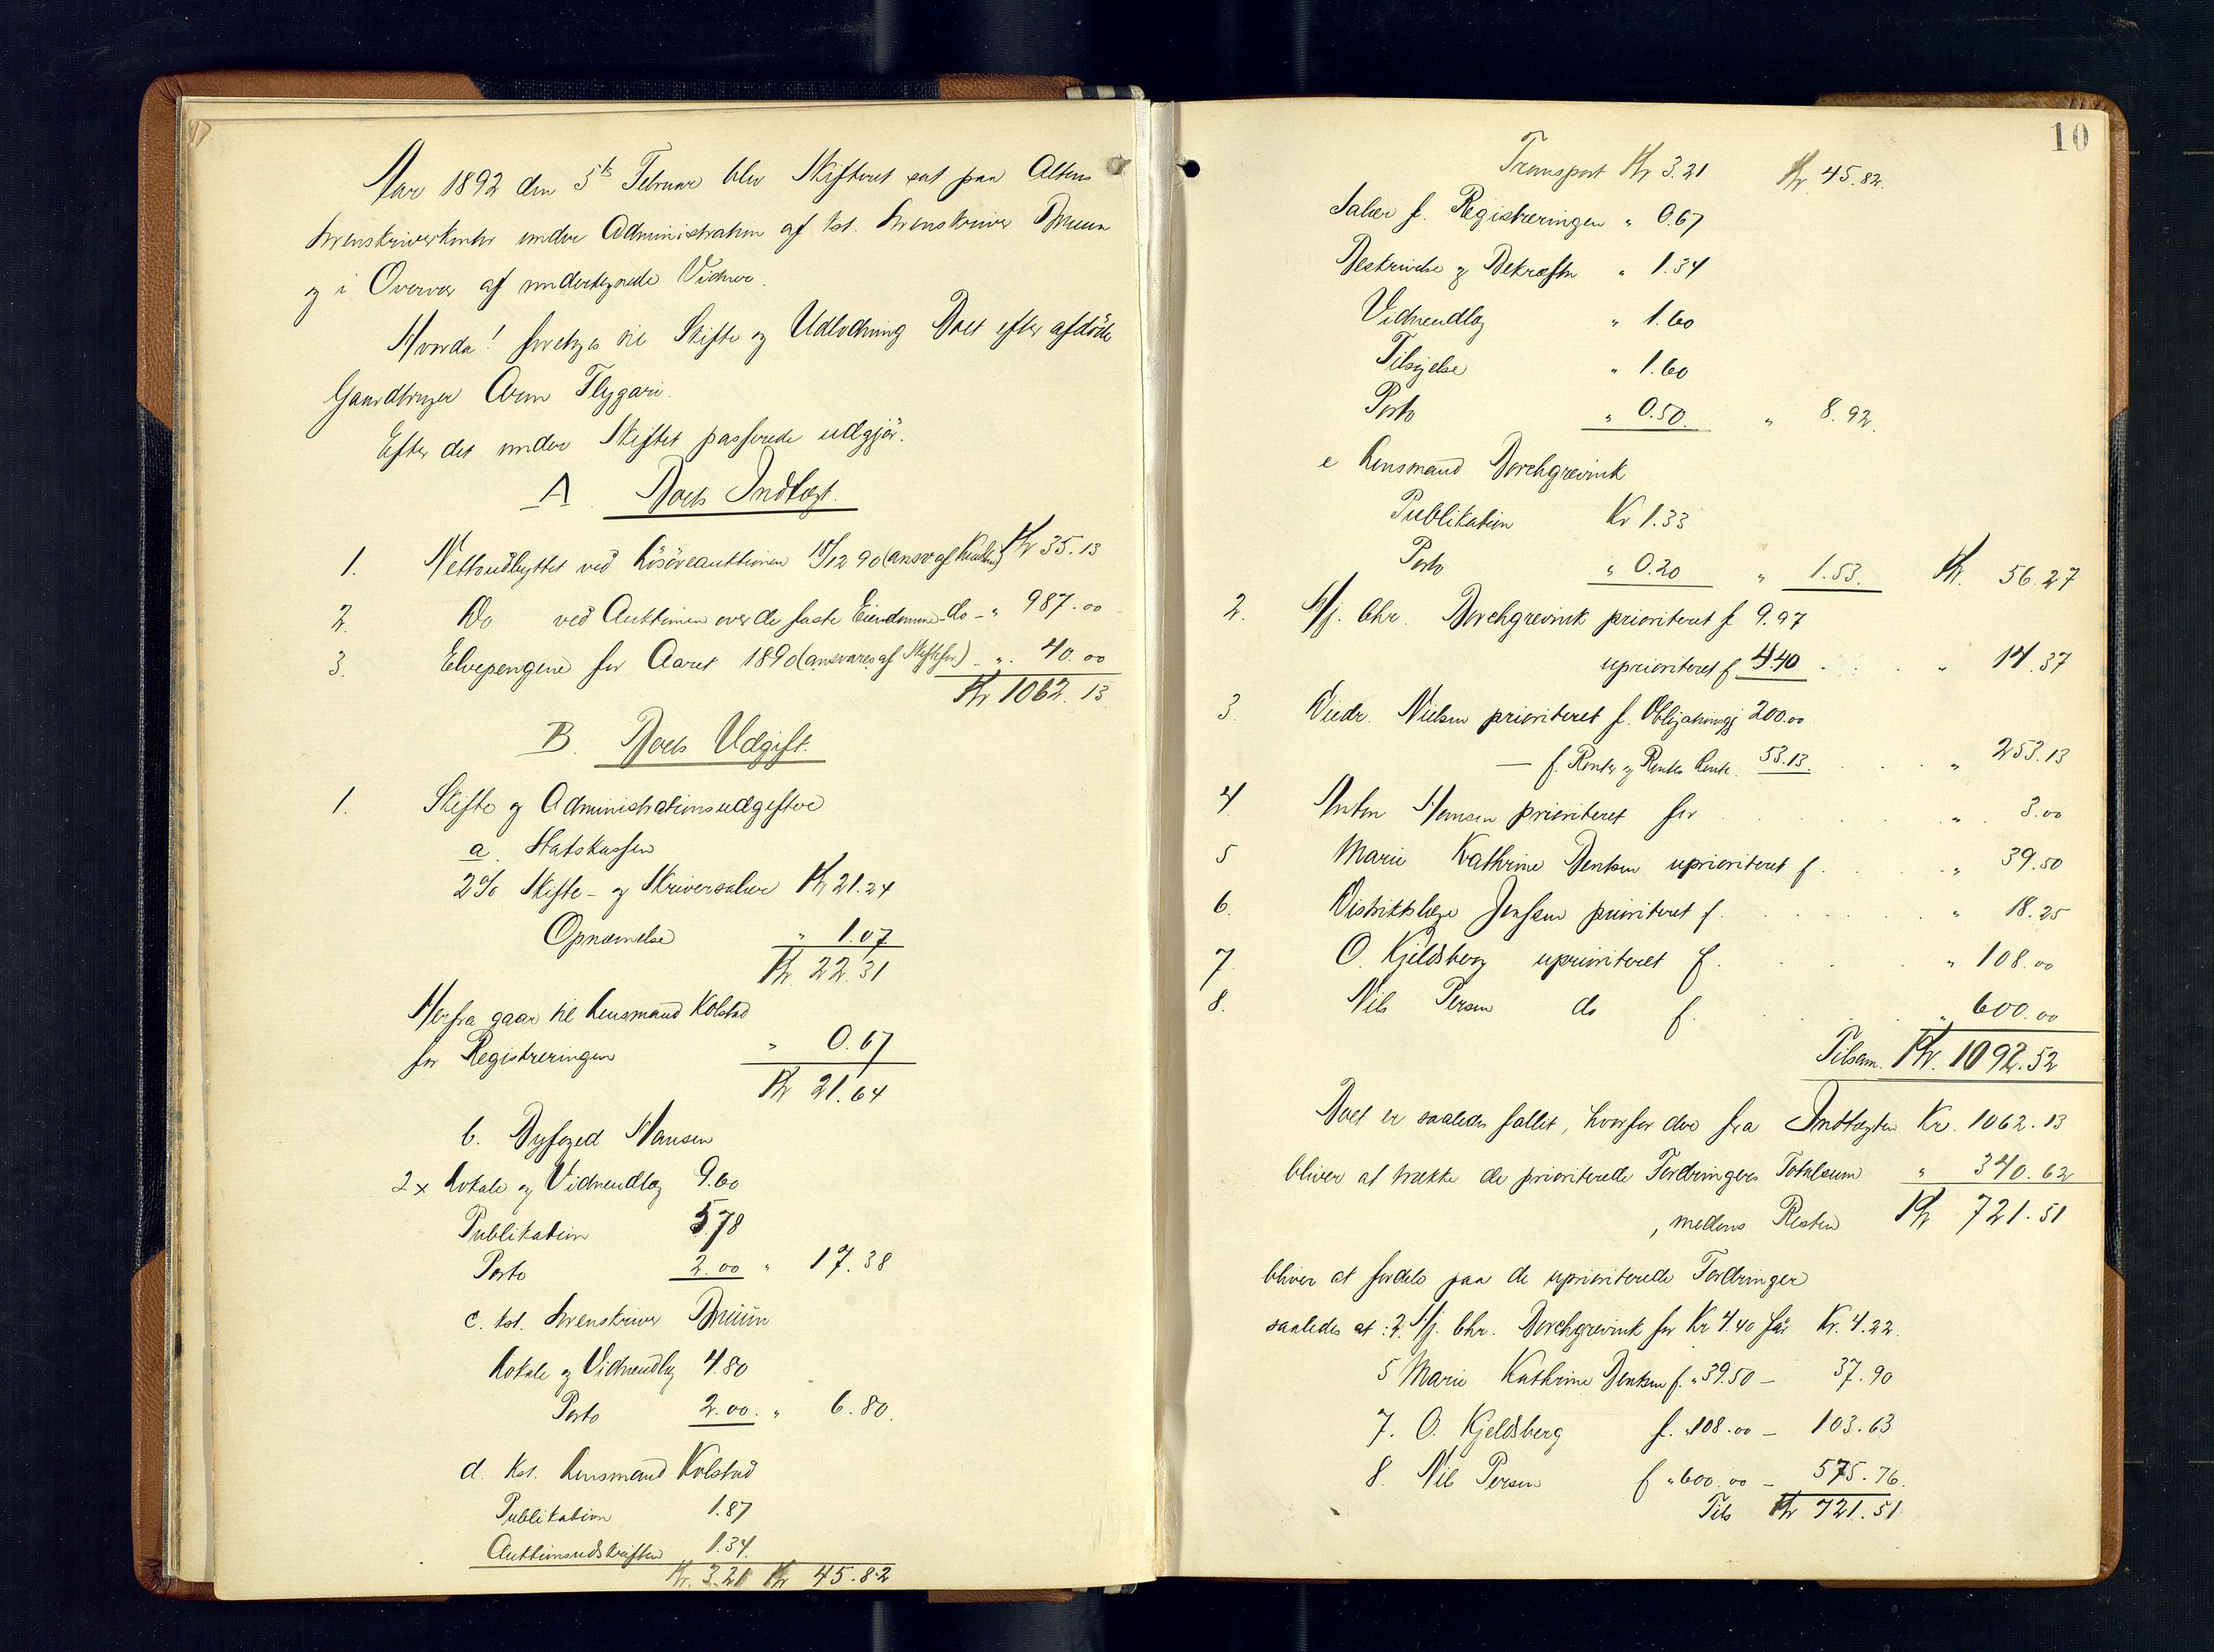 Aar 1892 den 5te Februar blev Skifteret sat paa Altens
Sorenskriverkontor under Administration af kst. Sorenskriver Bruun
og i Overvær af undertegnede Vidner.
Hvorda! foretoges til Skifte og Udlodning Boet efter afdöde
Gaardbruger Aron Flygari.
Efter det under Skiftet passerede udgjör.
A. Boets Indtægt.
1. Nettoudbyttet ved Lösöreauktionen 18/12 90 (ansv. af ) Kr 35.13
2. Do ved Auktionen over de faste Eiendomme do - " 987.00
3. Elvepengene for Aaret 1890 (ansvares af Skiftefor.) - " 40.00
Kr 1062.13
B. Boets Udgift.
1. Skifte og Administrationsudgifter
a. Statskassen
2% Skifte- og Skriversalær Kr 21.24
Opnævnelse " 1.07
Kr. 22.31
Herfra gaar til Lensmand Kolstad
for Registreringen " 0.67
Kr 21.64
b. Byfoged Hansen
2 x Lokale og Vidneudlæg 9.60
Publikation 5.78
Porto 2.00 " 17.38
c. kst. Sorenskriver Bruun
Lokale og Vidneudlæg 4.80
Porto 2.00. " 6.80.
d. kst. Lensmand Kolstad
Publikation 1.87
Auktionsudskriften 1.34.
Kr. 3.21 Kr 45.82
10
Transport Kr 3.21 Kr 45.82.
Salær f. Registreringen " 0.67
Beskrivelse og Bekræfte " 1.34
Vidneudlæg " 1.60
Tilsigelse " 1.60
Porto " 0.50. " 8.92.
e Lensmand Borchgrevink
Publikation Kr 1.33
Porto " 0.20 " 1.53. Kr. 56.27
2. Hj. Chr. Borchgrevink prioriteret f 9.97
uprioriteret f 4.40 . . . " 14.37
3. Diedr. Nielsen prioriteret f. Obligationsgj 200.00
— f. Renter og Renters Rente. 53.13. . . . " 253.13
4. Anton Hansen prioriteret for . . . . . " 3.00
5 Marie Kathrine Bentsen uprioriteret f . . . . " 39.50
6. Distriktslæge Jenssen prioriteret f. . . . . " 18.25
7. O. Kjeldsberg uprioriteret f. . . . " 108.00
8. Nils Persen do f. . . . . " 600.00
Tilsam. Kr. 1092.52
Boet er saaledes fallit, hvorfor der fra Indtægten Kr. 1062.13
bliver at trække de prioriterede Fordringers Totalsum " 340.62
, medens Resten Kr 721.51
bliver at fordele paa de uprioriterede Fordringer
saaledes at: 2. Hj. Chr. Borchgrevink for Kr 4.40 får Kr. 4.22.
5 Marie Kathrine Bentsen f. " 39.50 - 37.90
7. O. Kjeldsberg f. " 108.00 - 103.63
8. Nils Persen f " 600.00 - 575.76.
Tils Kr 721.51